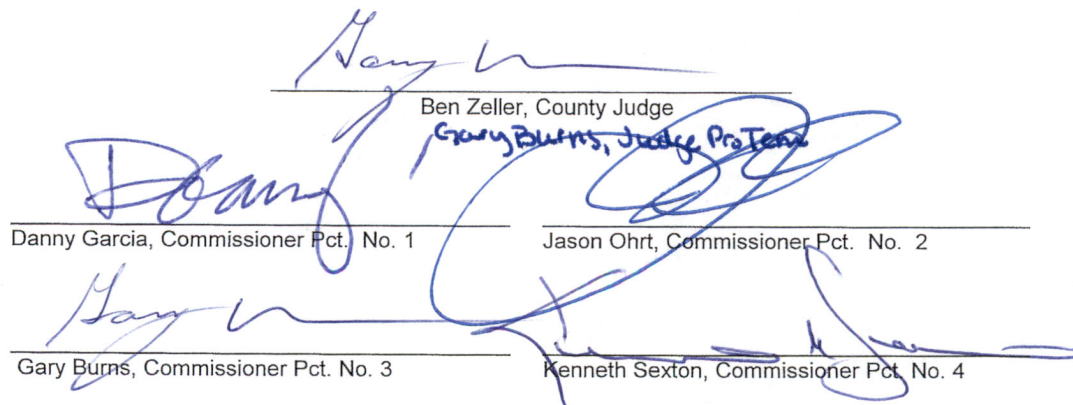 Gary
Ben Zeller, County Judge
Gary Burns, Judge ProTem
Danny
Danny Garcia, Commissioner Pct. No. 1
Jason Ohrt, Commissioner Pct. No. 2
Gary
Gary Burns, Commissioner Pct. No. 3
Kenneth Sexton, Commissioner Pct. No. 4